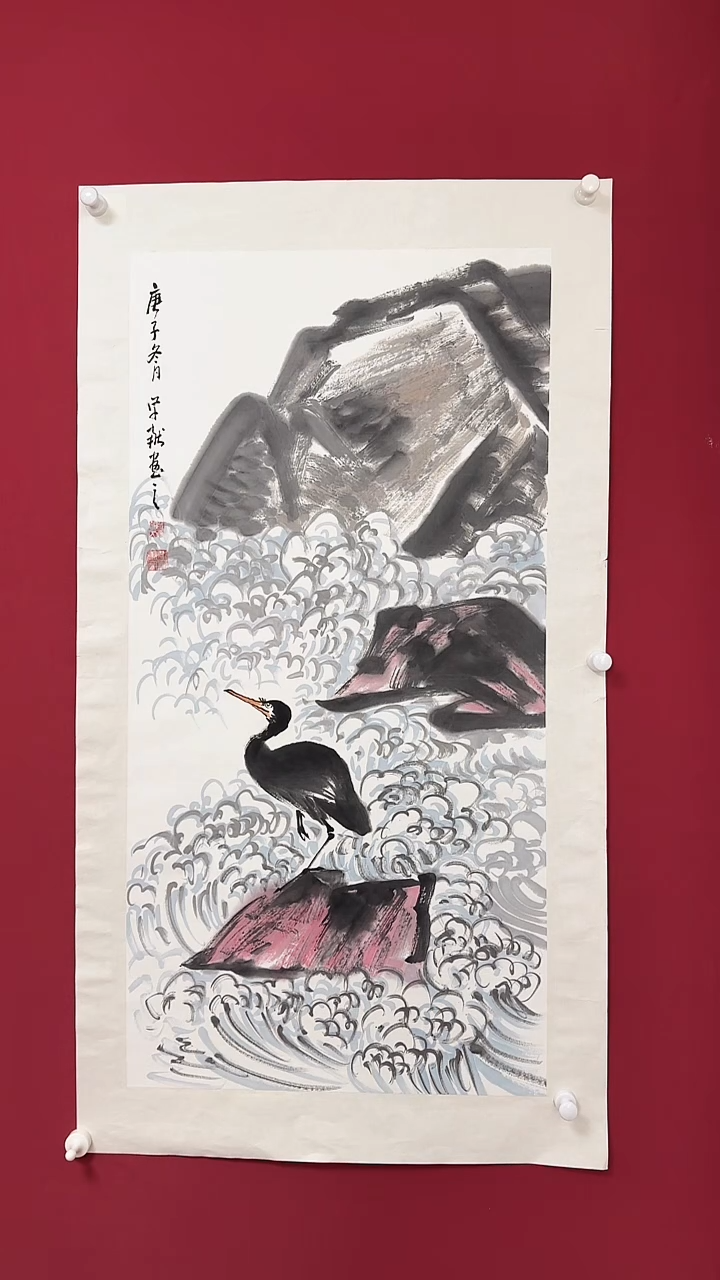 庚子冬月 学猷画之